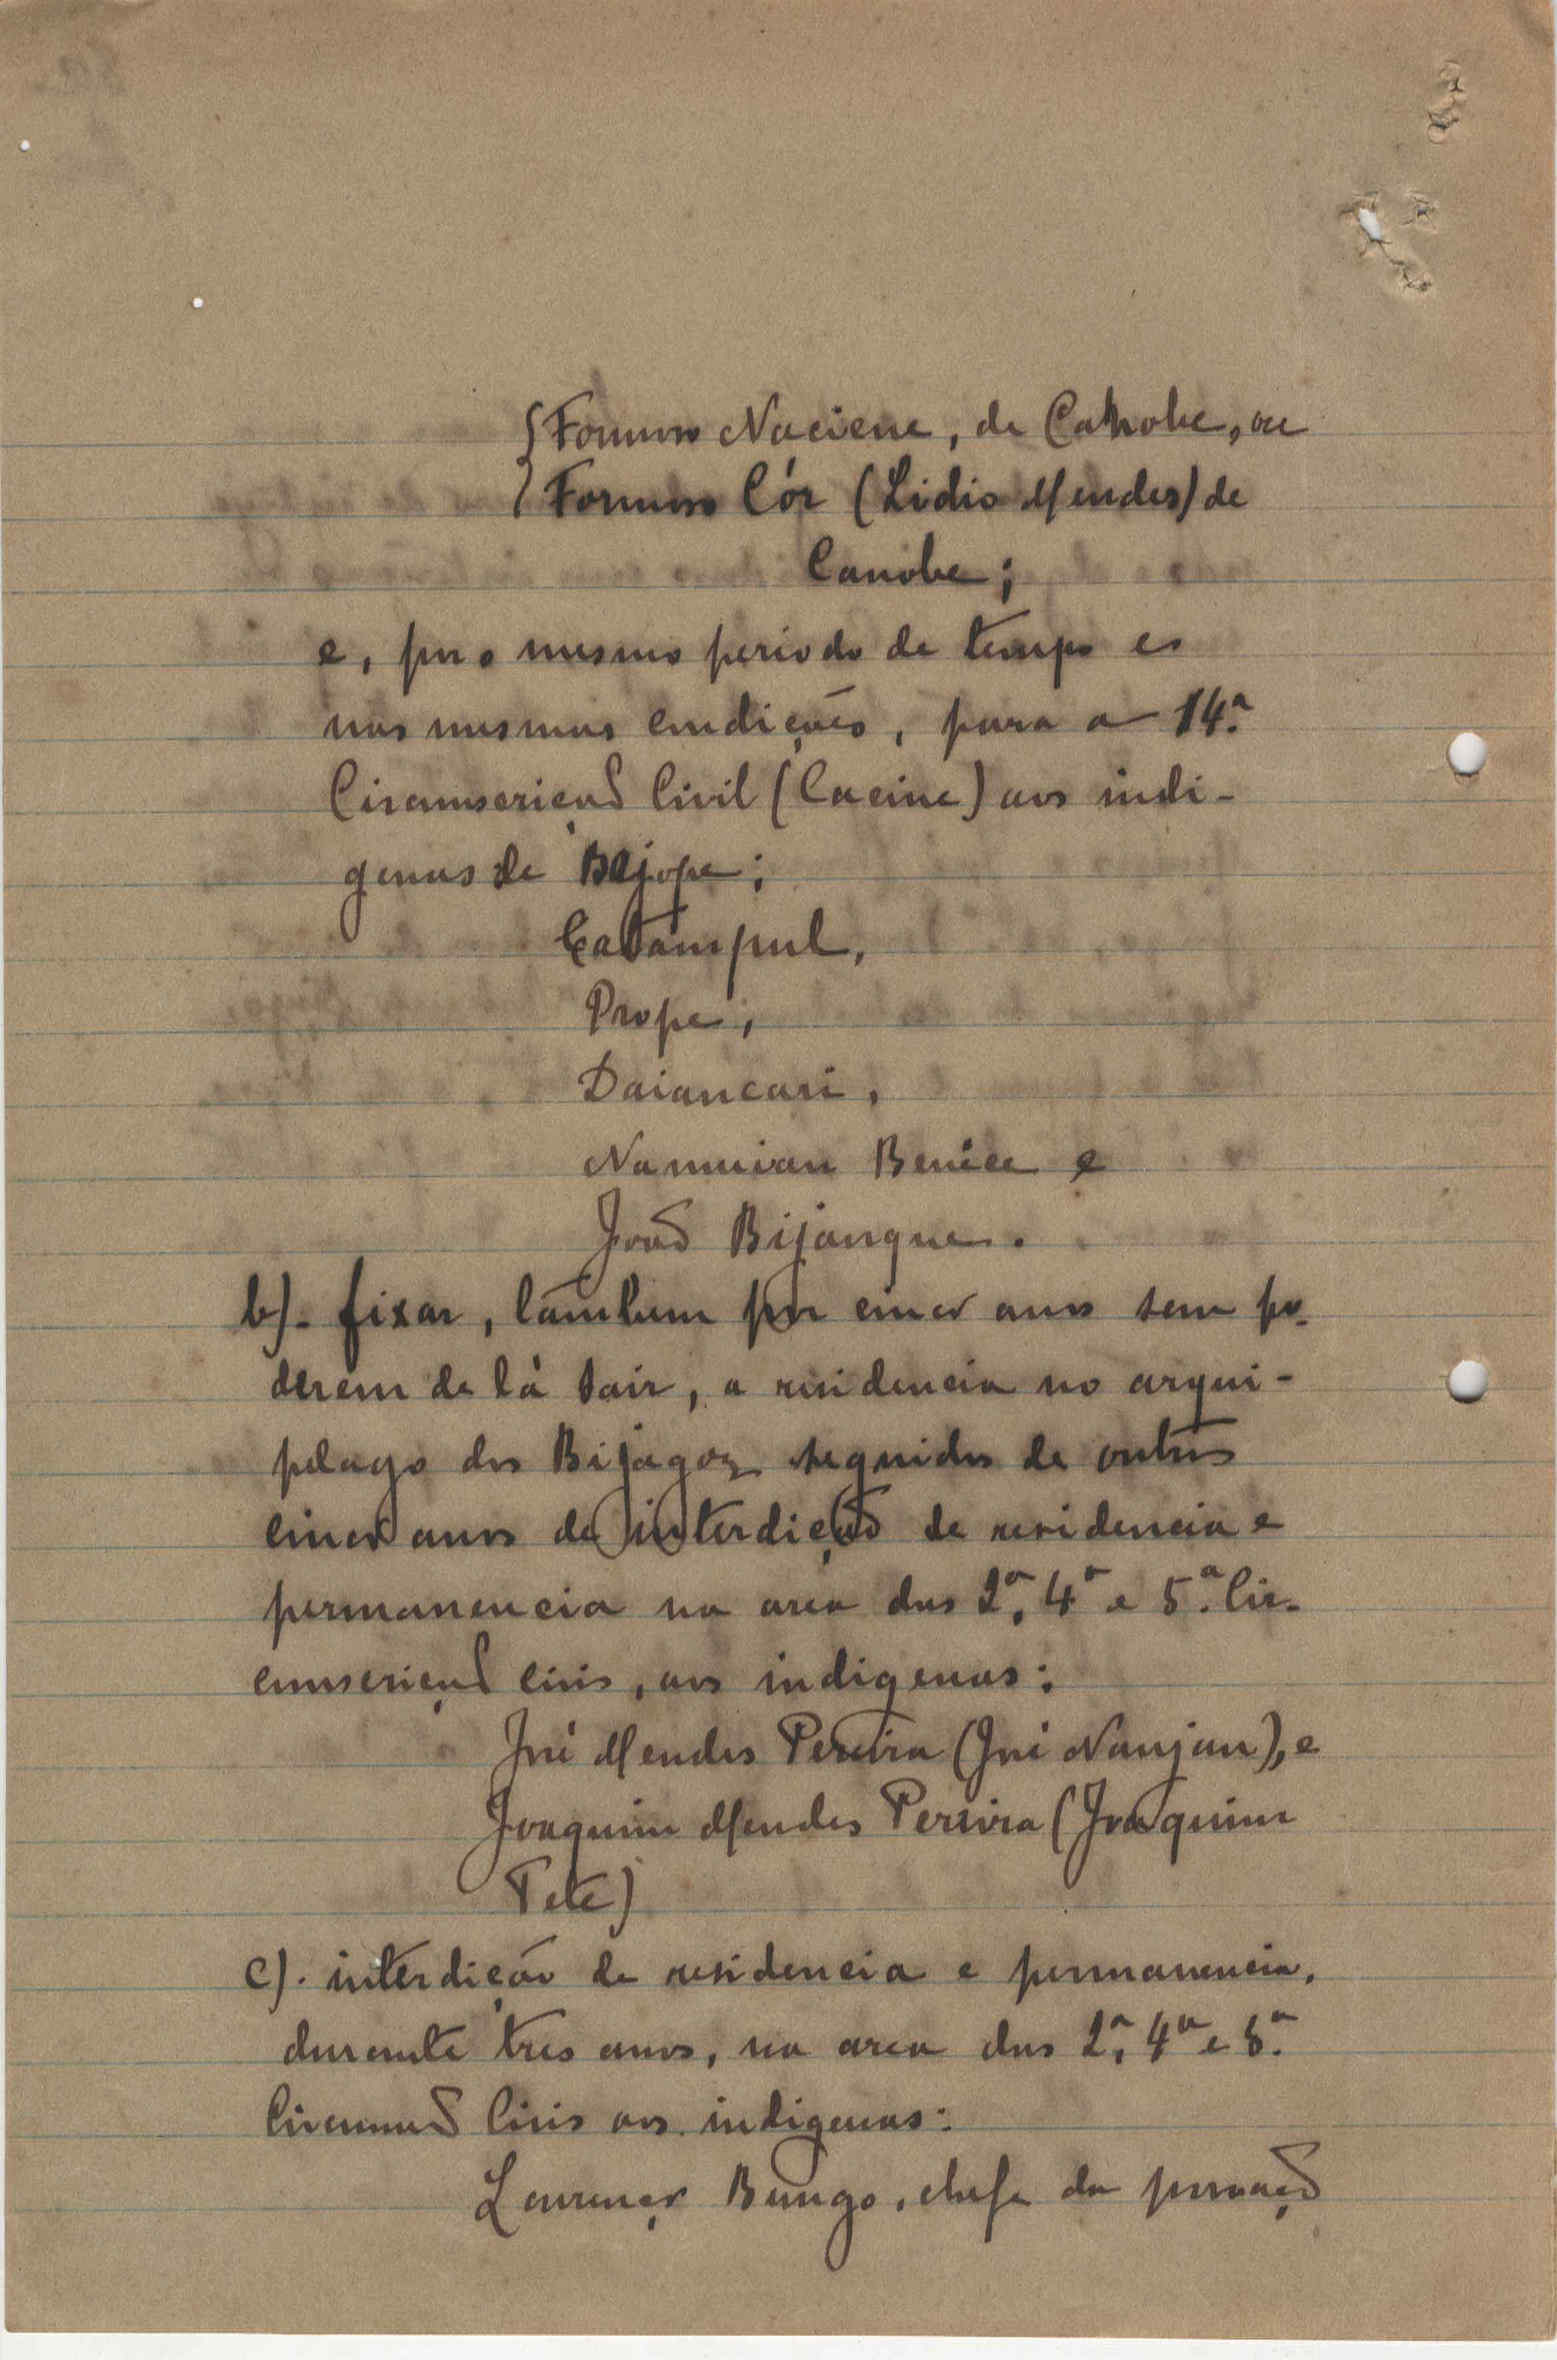 Formoso Naciene, de Canhobe, ou
Formoso Cór (Lidio Mendes) de
Canobe;
e, por o mesmo periodo de tempo e
nas mesmas condições, para a 14.ª
Circunscrição Civil (Cacine) aos indi-
genas de Bajope;
Catampul,
Prope,
Daiancari,
Namuian Benice e
João Bijangue.
b)- fixar, támbem por cinco anos sem po-
derem de lá sair, a residencia no arqui-
pelago dos Bijagoz seguidos de outros
cinco anos de interdição de residencia e
permanencia na area das 2.ª, 4.ª e 5.ª Cir-
cunscrição civis, aos indigenas:
José Mendes Pereira (José Nanjan), e
Joaquim Mendes Pereira (Joaquim
Tete)
c). interdição de residencia e permanencia,
durante tres anos, na area das 2.ª, 4.ª e 5.ª
Circunsão Civis aos indigenas:
Lourenço Bungo, chefe da povoação